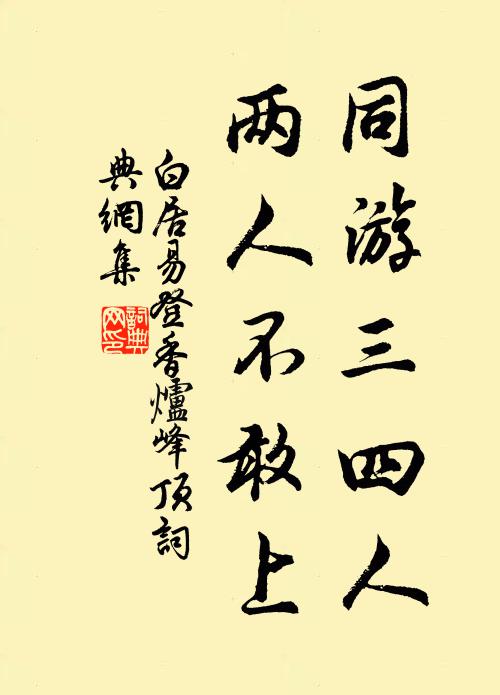 同游三四人
两人不敢上
白居易登香爐峰顶詞
典網集
詞典
网印